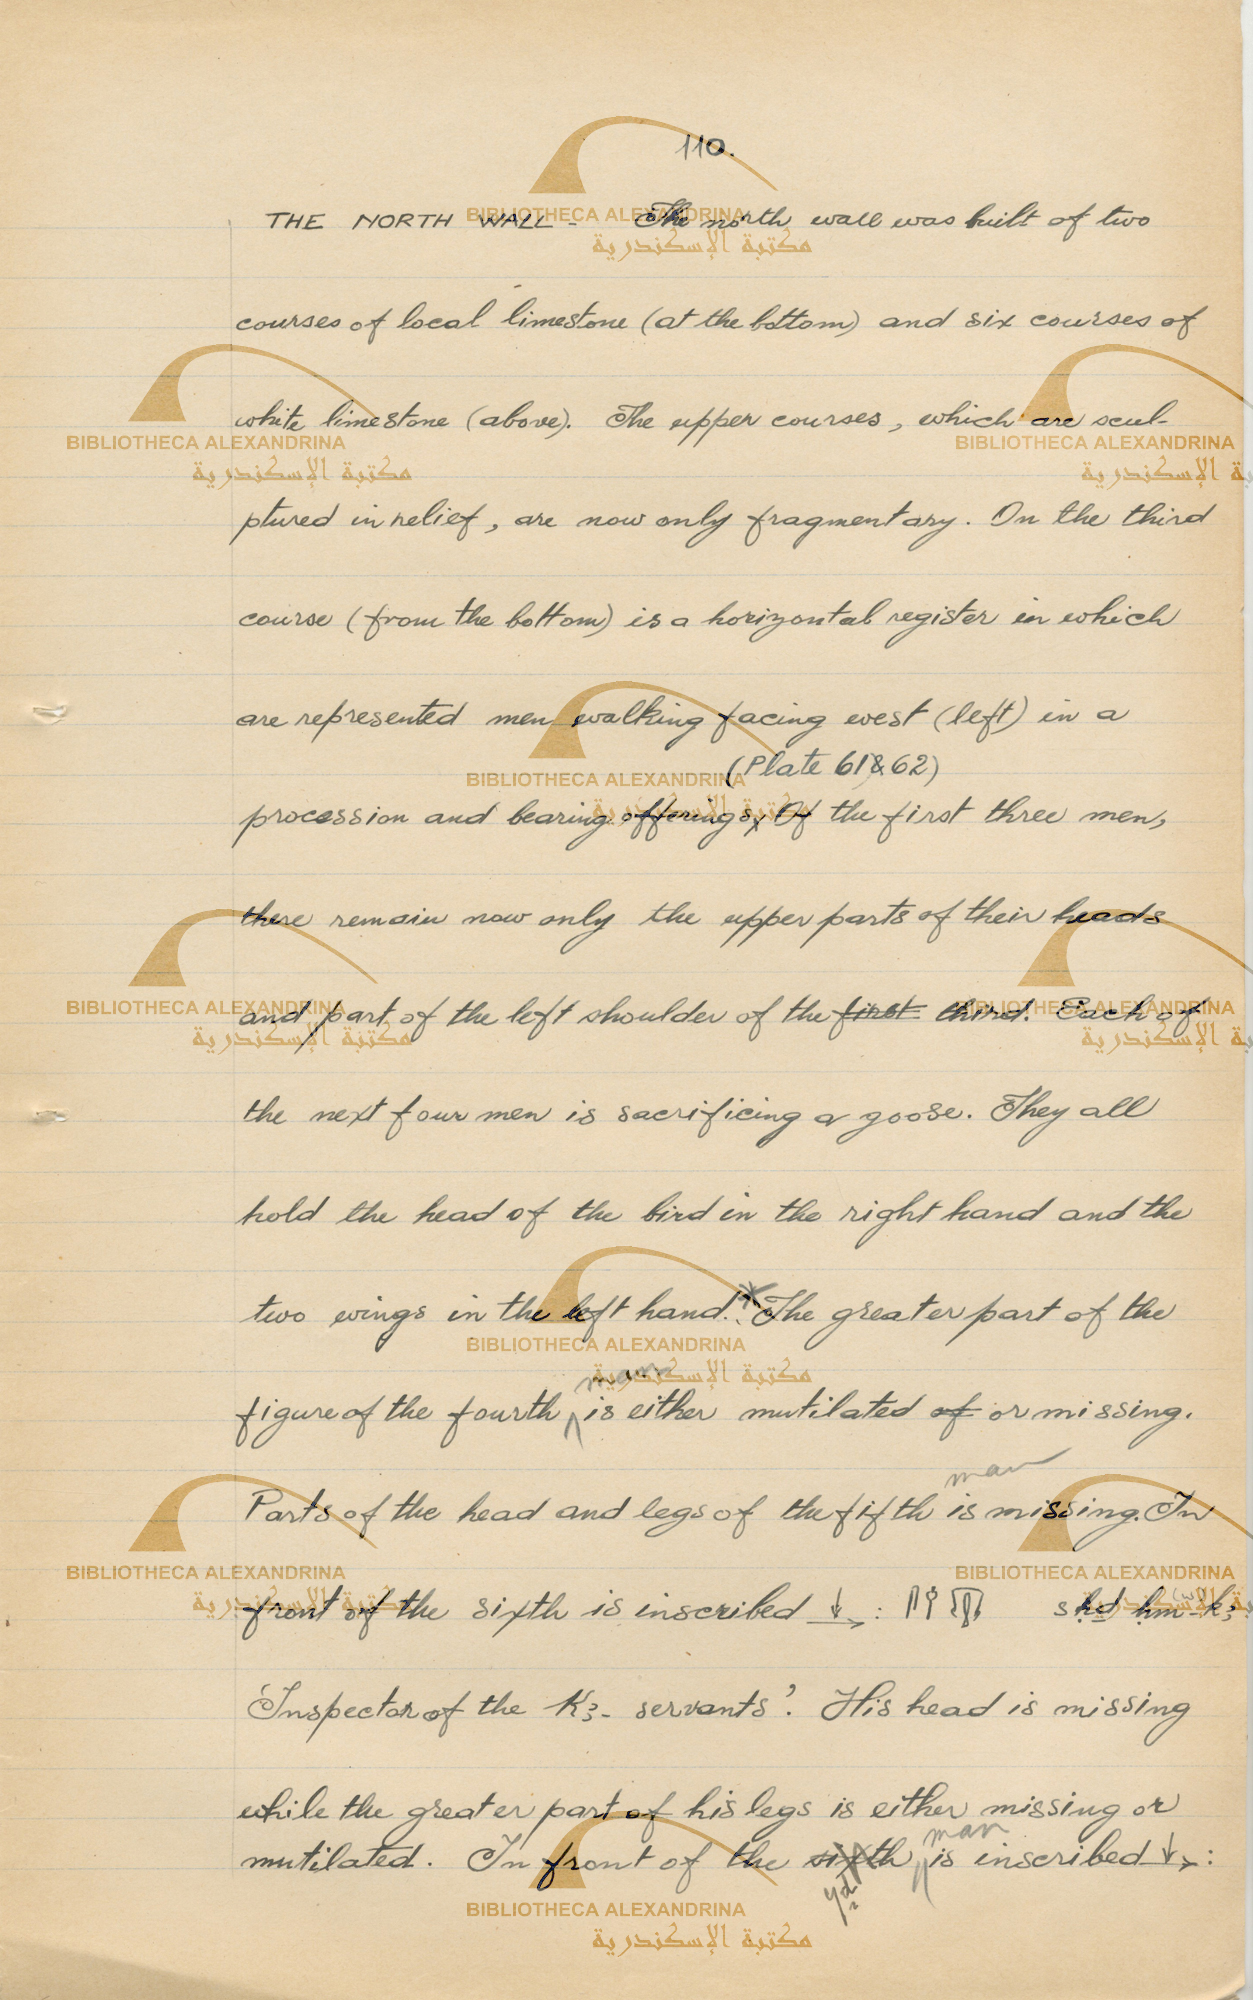 110.
THE NORTH WALL - The north wall was built of two
courses of local limestone (at the bottom) and six courses of
white limestone (above). The upper courses, which are scul-
ptured in relief, are now only fragmentary. On the third
course (from the bottom) is a horizontal register in which
are represented men walking facing west (left) in a
(Plate 61 & 62)
procession and bearing offerings, Of the first three men,
there remain now only the upper parts of their heads
and part of the left shoulder of the first third. Each of
the next four men is sacrificing a goose. They all
hold the head of the bird in the right hand and the
two wings in the left hand. * The greater part of the
man
figure of the fourth is either mutilated of or missing.
man
Parts of the head and legs of the fifth is missing. In
front of the sixth is inscribed ↓→ : sḥḏ ḥm-kꜣ
'Inspector of the Kꜣ- servants'. His head is missing
while the greater part of his legs is either missing or
man
mutilated. In front of the sixth is inscribed ↓→ :
BIBLIOTHECA ALEXANDRINA
مكتبة الإسكندرية